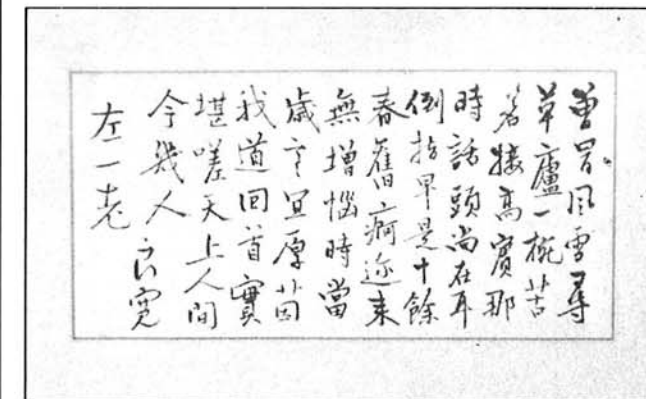 曽冒風雪尋
草廬一椀苦
茗接高賓那
時話頭尚在耳
倒指早是十餘
春舊痾邇来
無增惱時當
歳寒宜厚茵
我道回首實
堪嗟天上人間
今幾人 良寛
左一老